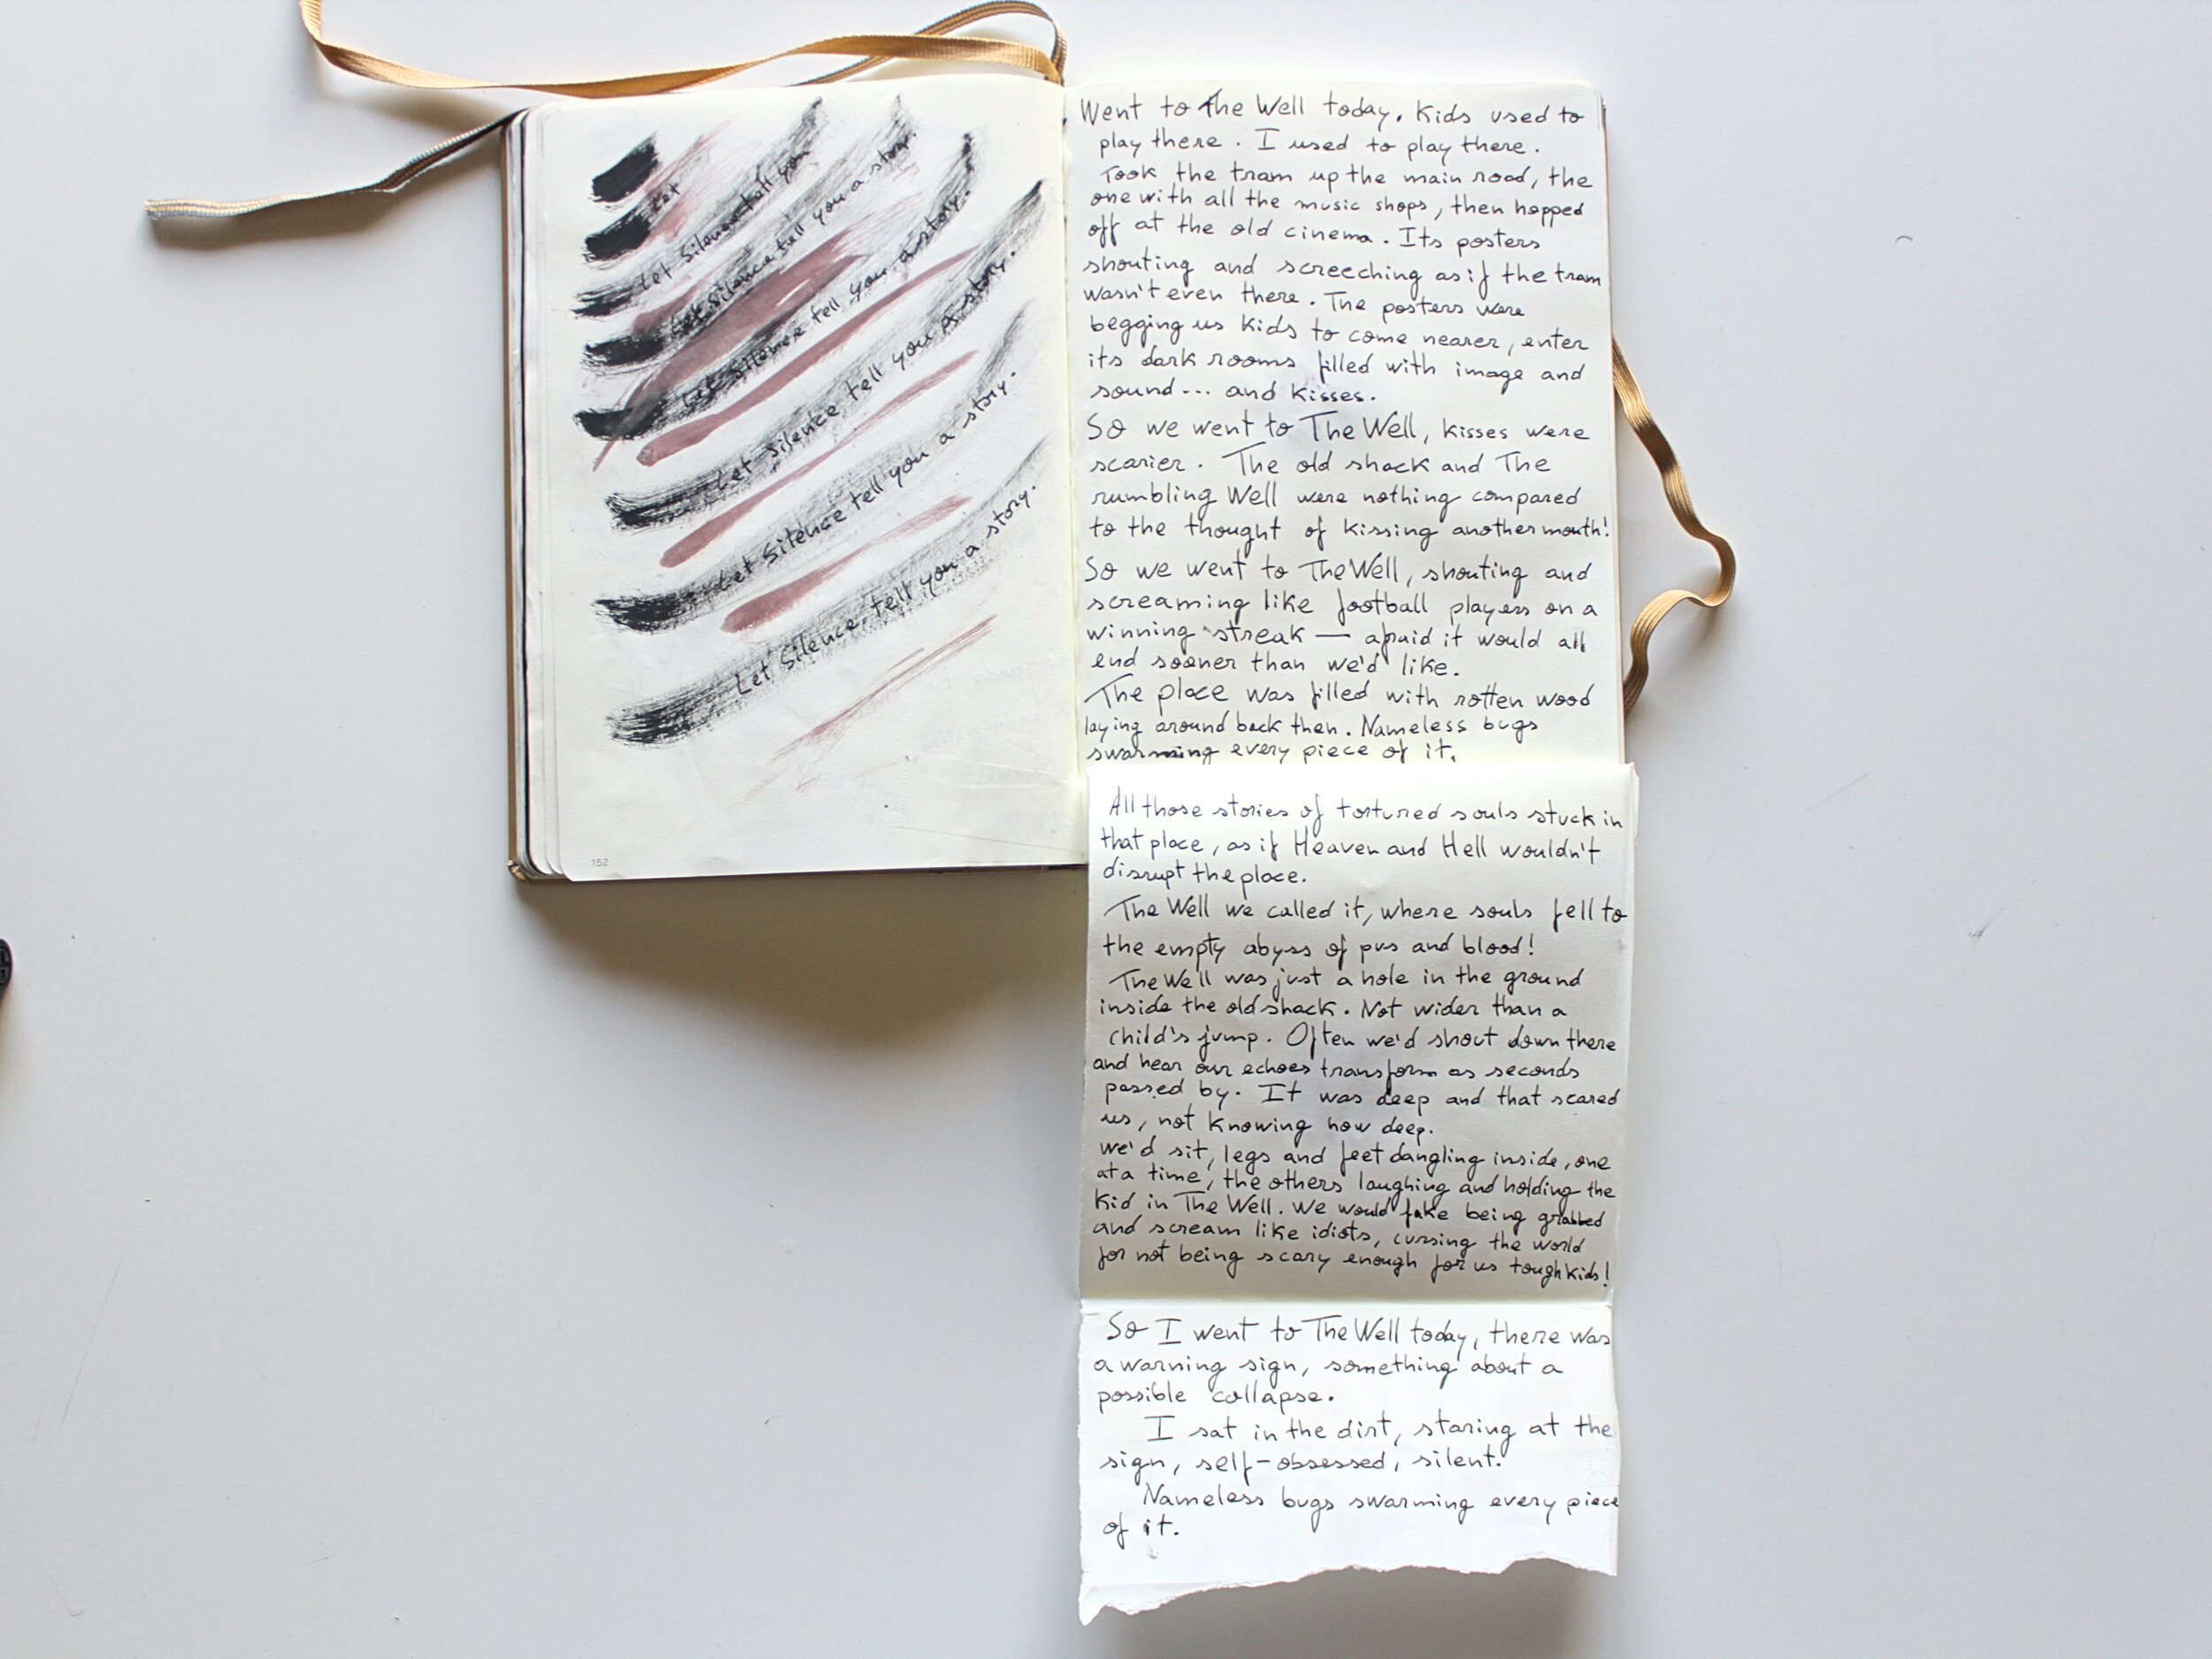 Let
Let Silence tell you
Let Silence tell you a story.
Let Silence tell you a story.
Let Silence tell you a story.
Let Silence tell you a story.
Let Silence tell you a story.
152
Went to The Well today. Kids used to
play there. I used to play there.
Took the tram up the main road, the
one with all the music shops, then hopped
off at the old cinema. Its posters
shouting and screeching as if the tram
wasn't even there. The posters were
begging us kids to come nearer, enter
its dark rooms filled with image and
sound... and kisses.
So we went to The Well, kisses were
scarier. The old shack and The
rumbling Well were nothing compared
to the thought of kissing another mouth!
So we went to The Well, shouting and
screaming like football players on a
winning streak — afraid it would all
end sooner than we'd like.
The place was filled with rotten wood
laying around back then. Nameless bugs
swarming every piece of it.
All those stories of tortured souls stuck in
that place, as if Heaven and Hell wouldn't
disrupt the place.
The Well we called it, where souls fell to
the empty abyss of pus and blood!
The Well was just a hole in the ground
inside the old shack. Not wider than a
child's jump. Often we'd shout down there
and hear our echoes transform as seconds
passed by. It was deep and that scared
us, not knowing how deep.
we'd sit, legs and feet dangling inside, one
at a time, the others laughing and holding the
kid in The Well. We would fake being grabbed
and scream like idiots, cursing the world
for not being scary enough for us tough kids!
So I went to The Well today, there was
a warning sign, something about a
possible collapse.
I sat in the dirt, staring at the
sign, self-obsessed, silent.
Nameless bugs swarming every piece
of it.